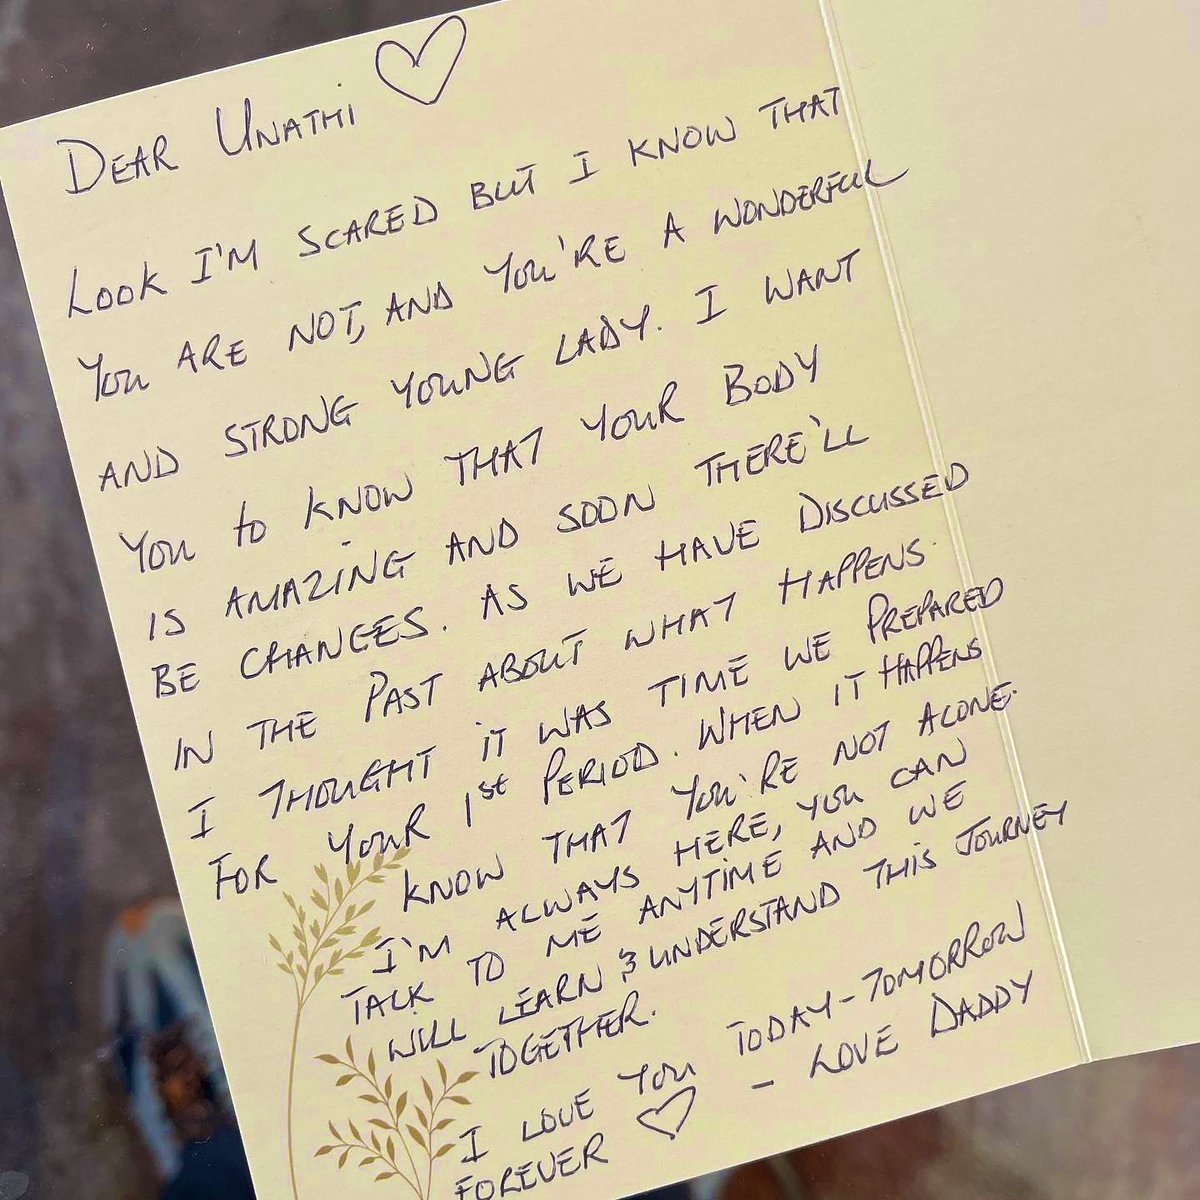 DEAR UNATHI
LOOK I'M SCARED BUT I KNOW THAT
YOU ARE NOT, AND YOU'RE A WONDERFUL
AND STRONG YOUNG LADY. I WANT
YOU to KNOW THAT YOUR BODY
IS AMAZING AND SOON THERE'LL
BE CHANGES. AS WE HAVE DISCUSSED
IN THE PAST ABOUT WHAT HAPPENS.
I THOUGHT IT WAS TIME WE PREPARED
FOR YOUR 1st PERIOD. WHEN IT HAPPENS
KNOW THAT YOU'RE NOT ALONE.
I'M ALWAYS HERE, YOU CAN
TALK TO ME ANYTIME AND WE
WILL LEARN & UNDERSTAND THIS JOURNEY
TOGETHER.
I LOVE YOU TODAY-TOMORROW
FOREVER
- LOVE DADDY